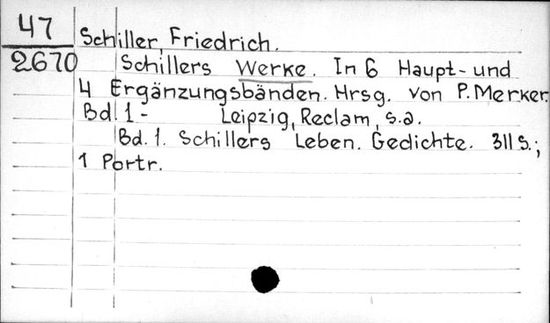 47 Schiller, Friedrich.
2670 Schillers Werke. In 6 Haupt- und
4 Ergänzungsbänden. Hrsg. von P. Merker.
Bd. 1 - Leipzig, Reclam, s.a.
Bd. 1. Schillers Leben. Gedichte. 311 S.;
1 Portr.